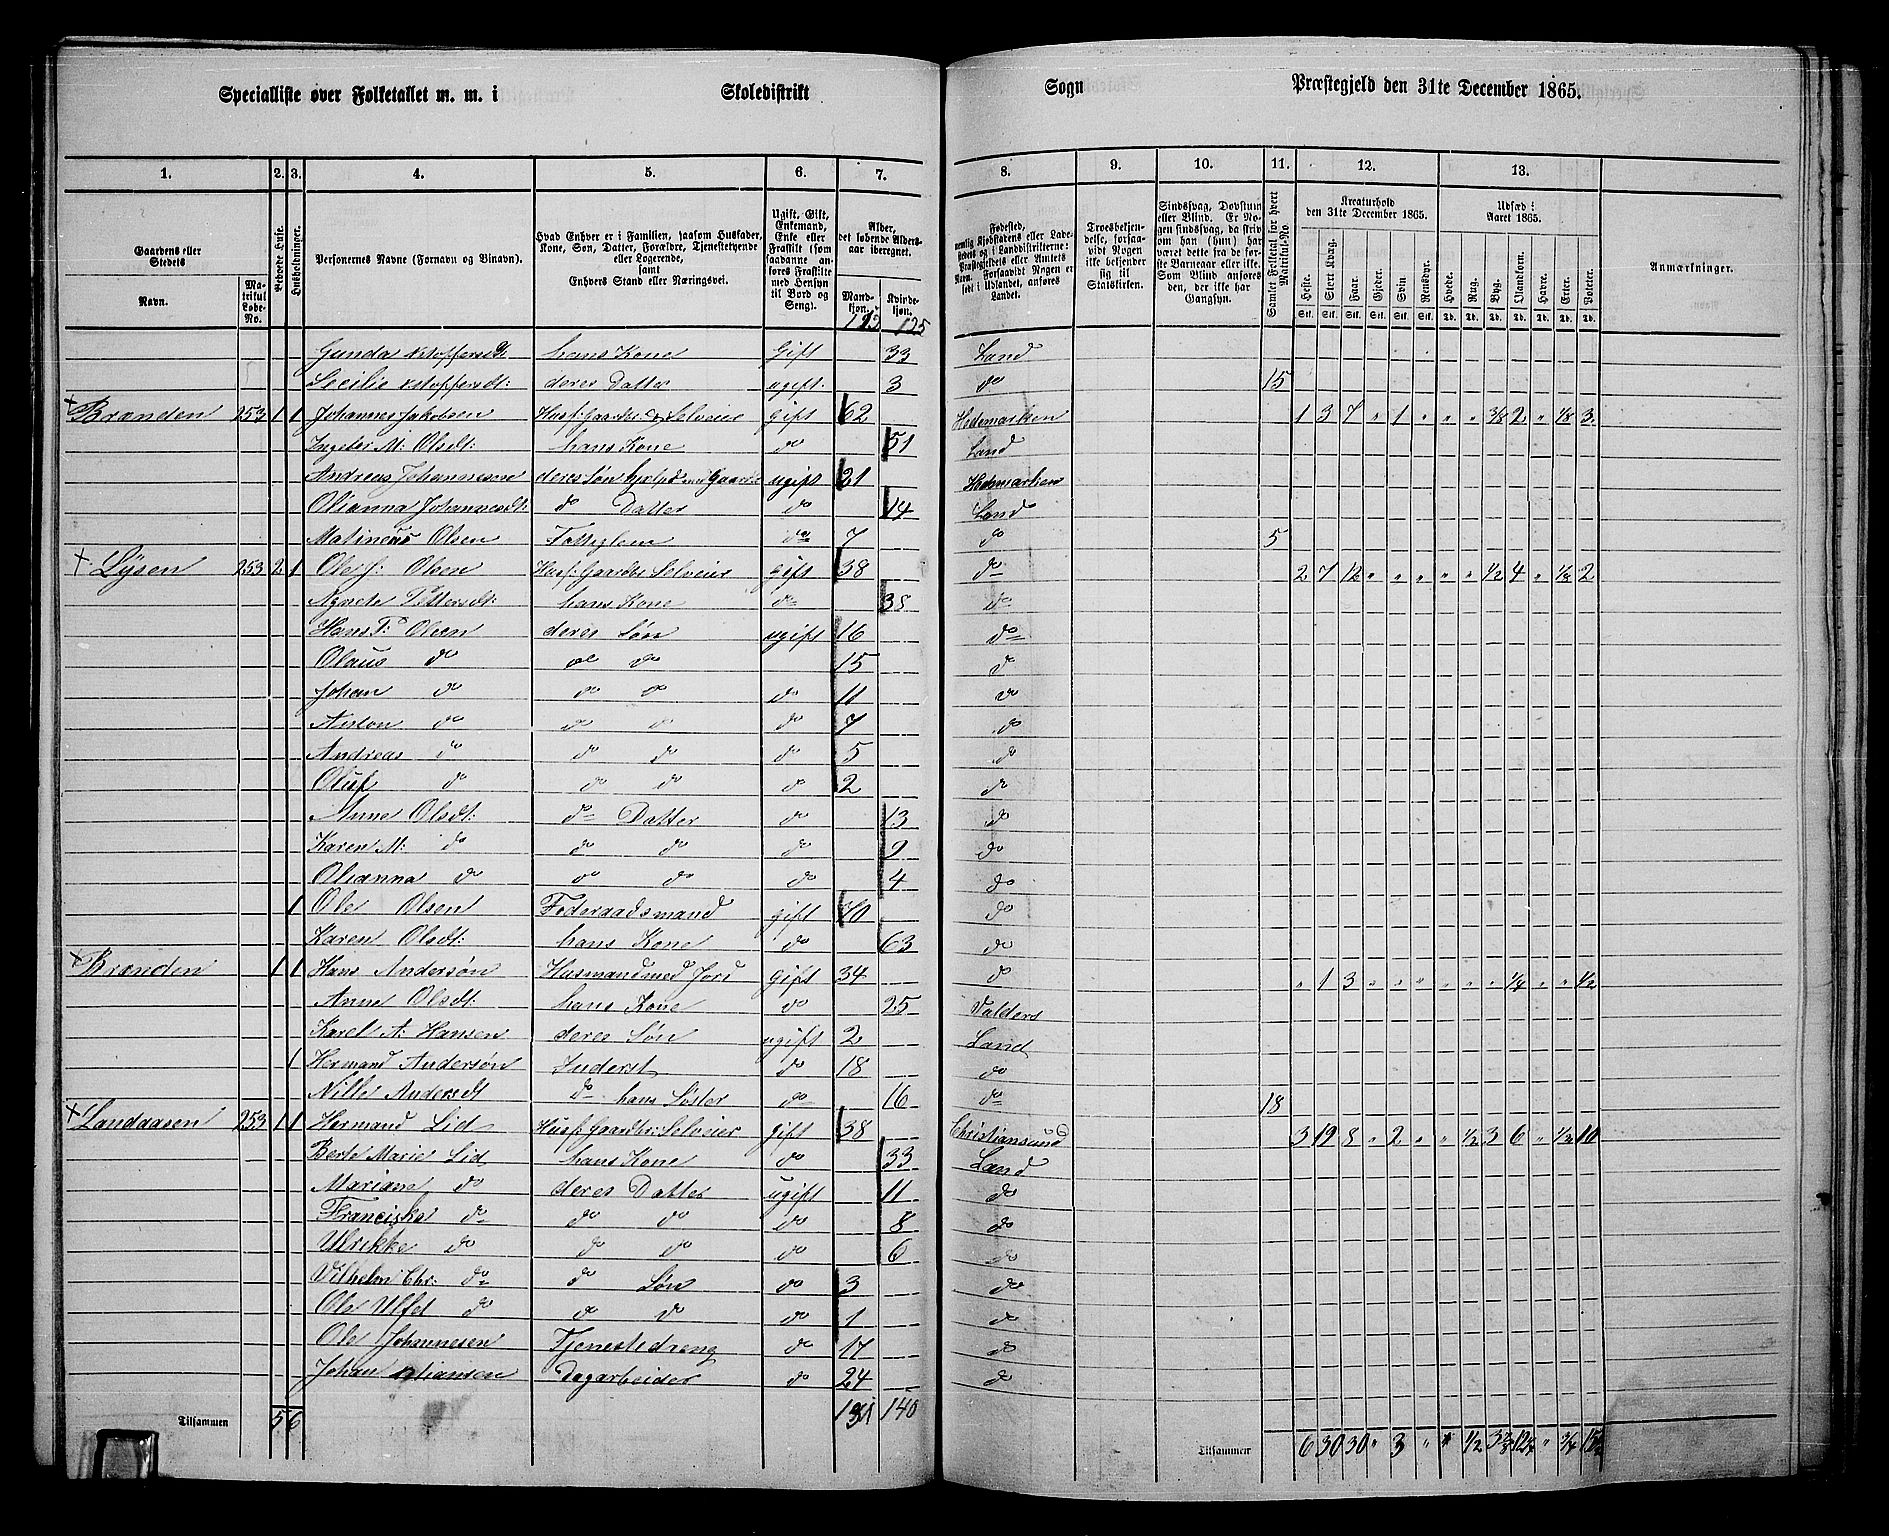 Specialliste over Folketallet m. m. i Skoledistrikt Sogn Præstegjeld den 31te December 1865.
1. 2. 3. 4. 5. 6. 7. 8. 9. 10. 11. 12. 13.
Gaardens eller Stedets
Navn.
Matrikul Løbe-No.
Beboede Huse.
Husholdninger.
Personernes Navne (Fornavn og Binavn).
Hvad Enhver er i Familien, saasom Husfader, Kone, Søn, Datter, Forældre, Tjenestetyende eller Logerende, samt Enhvers Stand eller Næringsvei.
Ugift, Gift, Enkemand, Enke eller Fraskilt (som saadanne anføres Fraskilte med Hensyn til Bord og Seng).
Alder, det løbende Aldersaar iberegnet.
Mandkjøn.
Kvindekjøn.
Trosbekjendelse, forsaavidt Nogen ikke bekjender sig til Statskirken.
Sindssvag, Døvstum eller Blind.
Samlet Folketal for hvert Matrikul-No.
Kreaturhold den 31te December 1865.
Heste. Stort Kvæg. Faar. Gjeder. Svin. Rensdyr.
Udsæd i Aaret 1865.
Hvede. Rug. Byg. Blandkorn. Havre. Erter. Poteter.
Anmærkninger.
125
Gunda hans Kone Gift 33 Land
Secilie deres Datter ugift 3 do 15
Brænden 253 1 1 Johannes Jakobsen Husf: Gaardbr: Selveier gift 62 Hedemarken 1 3 7 " 1 " " " 3/8 2 " 1/8 3
M: Olsdt: hans Kone do 51 Land
Andreas Johannesen deres Søn ugift 21 Hedmarken
Olianna Johannesdt: do Datter do 14 Land
Matineus Olsen do 7 do 5
Lysen 253 2 1 Ole J: Olsen Husf: Gaardbr Selveier gift 38 do 2 7 12 " " " " " 1/2 4 " 1/8 2
Agnete Pettersdt: hans Kone do 38 do
Hans P: Olsen deres Søn ugift 16 do
Olaus do do do 15 do
Johan do do do do 11 do
Anton do do do do 7 do
Andreas do do do do 5 do
Oluf do do do do 2 do
Anne Olsdt: do Datter do 13 do
Karen M: do do do do 9 do
Olianna do do do do 4 do
1 Ole Olsen Føderaadsmand gift do
Karen Olsdt: hans Kone do 63 do
Brænden 1 1 Hans Andersøn Husmand med Jord gift 34 do " 1 3 " " " " " " 1/4 " " 1/2
Anne Olsdt: hans Kone do 25 Valders
Karel A: Hansen deres Søn ugift 2 Land
1 Hermand Andersøn Inderst do 18 do
Nille Andersdt do hans Søster do 16 do 18
Landaasen 253 1 1 Hermand Lid Husf: Gaardbr: Selveier gift 38 Christiansund 3 19 8 " 2 " " 1/2 3 6 " 1/2 10
Berte Marie Lid hans Kone do 33 Land
Mariane do deres Datter ugift 11 do
Franciska do do do do 8 do
Ulrikke do do do do 6 do
Vilhelm Chr: do do Søn do 3 do
Ole do do do do 1 do
Ole Johannesen Tjenestedreng do 17 do
Johan Dagarbeider do 24 do
Tilsammen 5 6 140
Tilsammen 6 30 30 " 3 " " 1/2